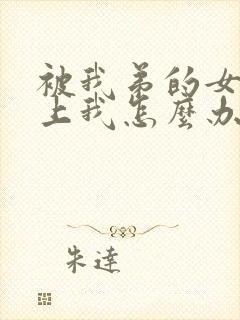 被我弟的女
上我怎麼办
朱達